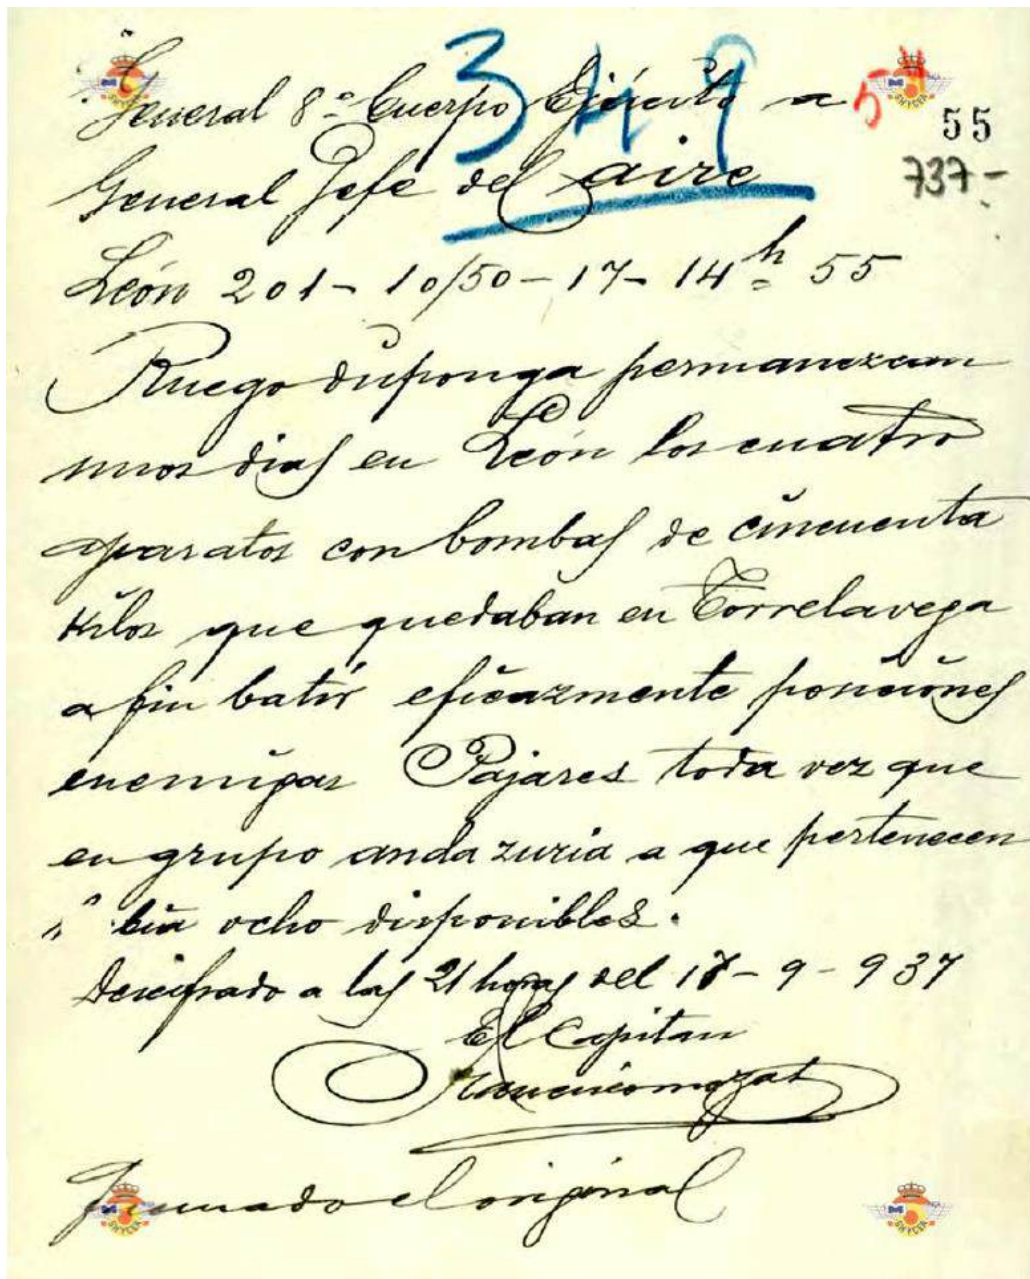 349
54
55
737-
General 8º Cuerpo Ejército a
General Jefe del aire
León 201- 10/50- 17- 14h 55
Ruego disponga permanezcan
unos dias en León los cuatro
aparatos con bombas de cincuenta
kilos que quedaban en Torrelavega
a fin batir eficazmente posiciones
enemigas Pajares toda vez que
en grupo anda zuria a que pertenecen
ocho disponibles.
Descifrado a las 21 horas del 17- 9 - 937
El Capitan
Firmado el original
SHYCEA
SHYCEA
SHYCEA
SHYCEA